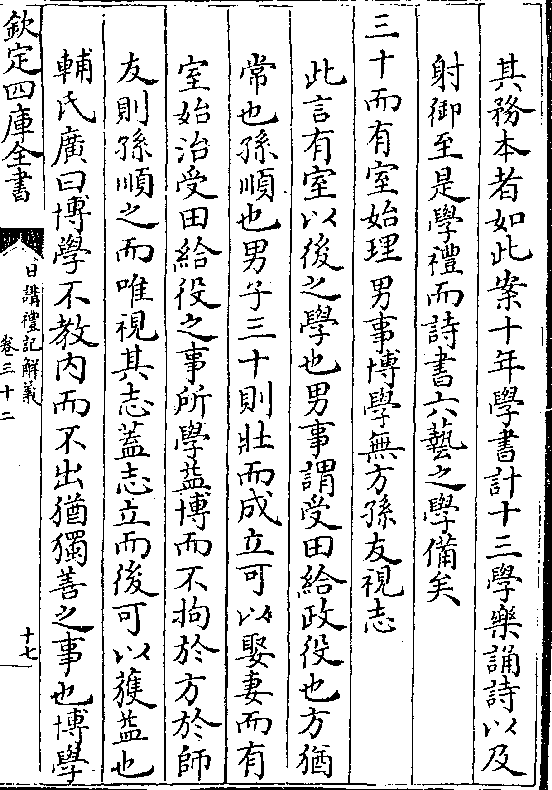 其務本者如此案十年學書計十三學樂誦詩以及
射御至是學禮而詩書六藝之學備矣
三十而有室始理男事博學無方孫友視志
此言有室以後之學也男事謂受田給政役也方猶
常也孫順也男子三十則壯而成立可以娶妻而有
室始治受田給役之事所學益博而不拘於方於師
友則孫順之而唯視其志蓋志立而後可以獲益也
輔氏廣曰博學不教內而不出猶獨善之事也博學
欽定四庫全書
日講禮記解義
卷三十二
十七